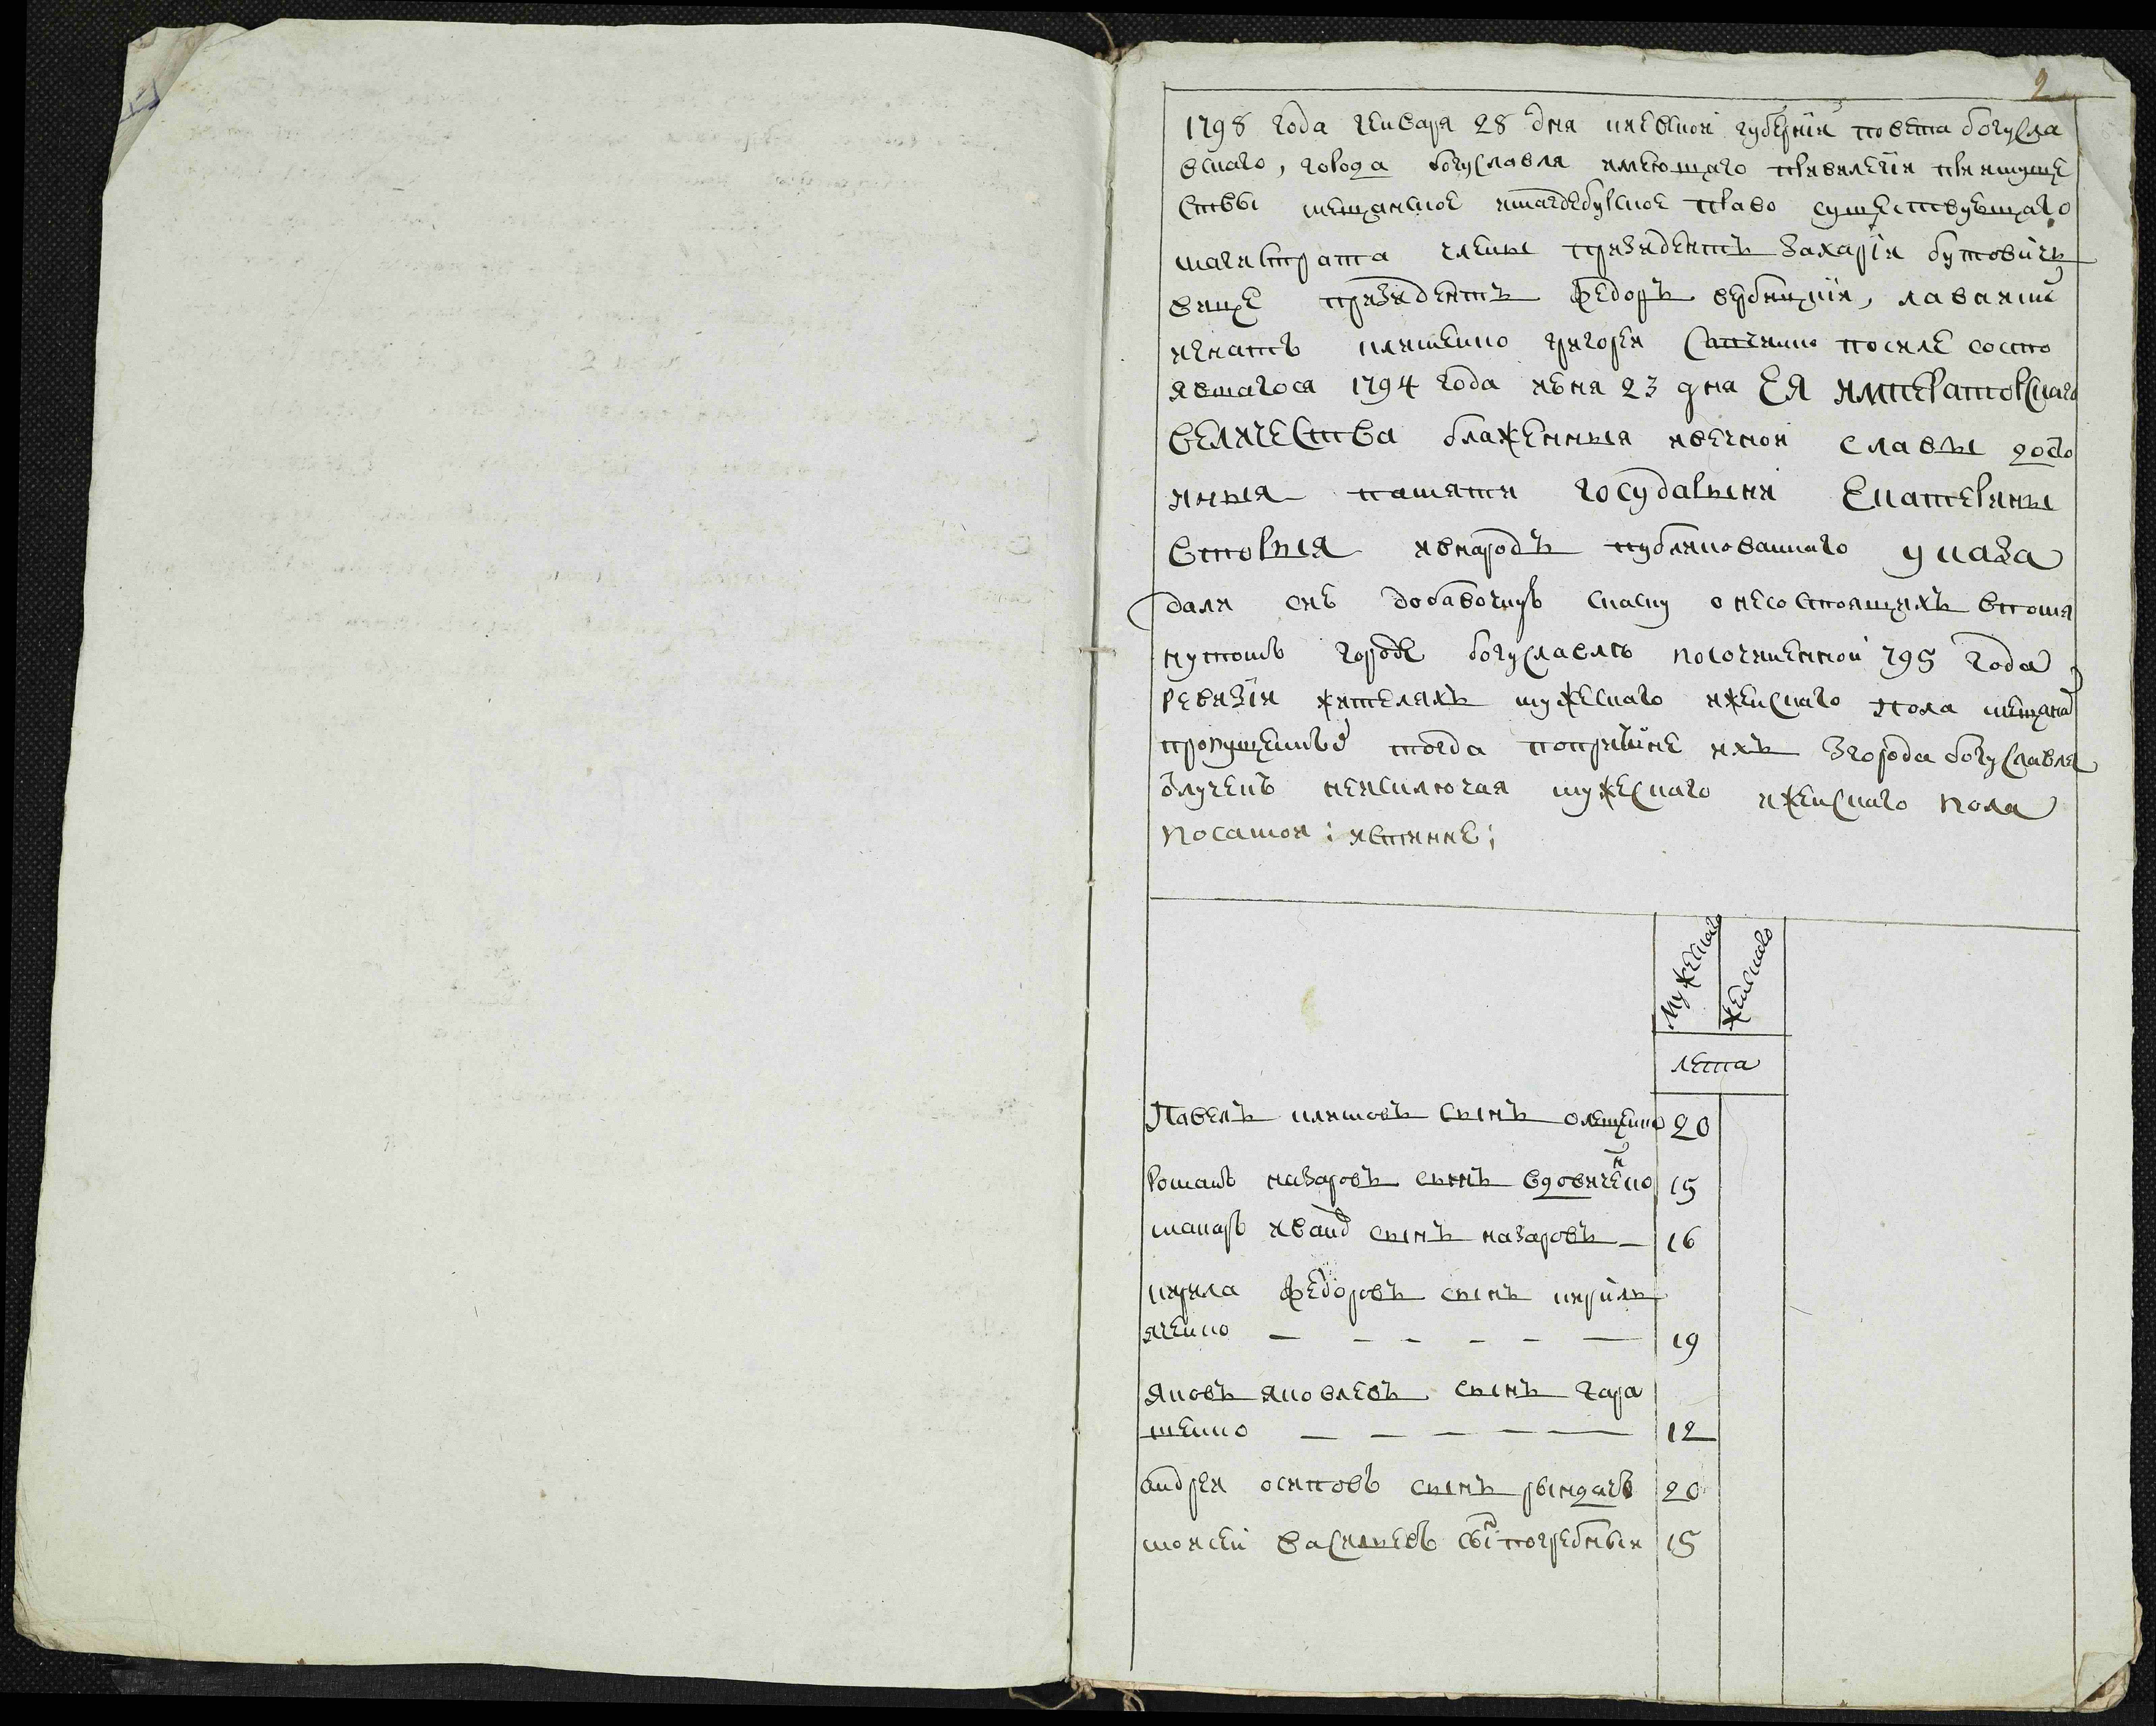 2
1798 года генваря 28 дня киевской губернии повета богусла
вскаго, города богуславля имеющаго привилегия преимуще
ствы мещанское имагдебурское право существующаго
магистрата члены президентъ Захария бутовичъ
вице президентъ федоръ вербицкия, лавники
игнатъ кляшенко григорей после состо
явшагося 1794 года июня 23 дня ЕЯ императорскаго
величества блаженныя ивечной славы досто
иныя памяти государыни Екатерины
вторыя ивнародъ публикованнаго указа
дали сию добавочную скаску онесостоящихъ впомя
нутомъ городе богуславлю посочиненной 795 года
ревизии жителяхъ мужескаго иженскаго пола мещанъ
пропущенные тогда попричине ихъ Згорода богуславля
олучень неисключая мужескаго иженскаго пола
посамои: истинне:
мужескаго
женскаго
лета
Павелъ климовъ сынъ олещенко 20
Романъ назаровъ сынъ вдовиченко 15
макаръ иванъ сынъ назаровъ — 16
кирила федоровъ сынъ кирилъ
иченко — — — — — — 19
яковъ яковлевъ сынъ гара
щенко — — — — — 12
андрей осиповъ сынъ рындичъ 20
моисей васильевъ сынъ погребныи 15